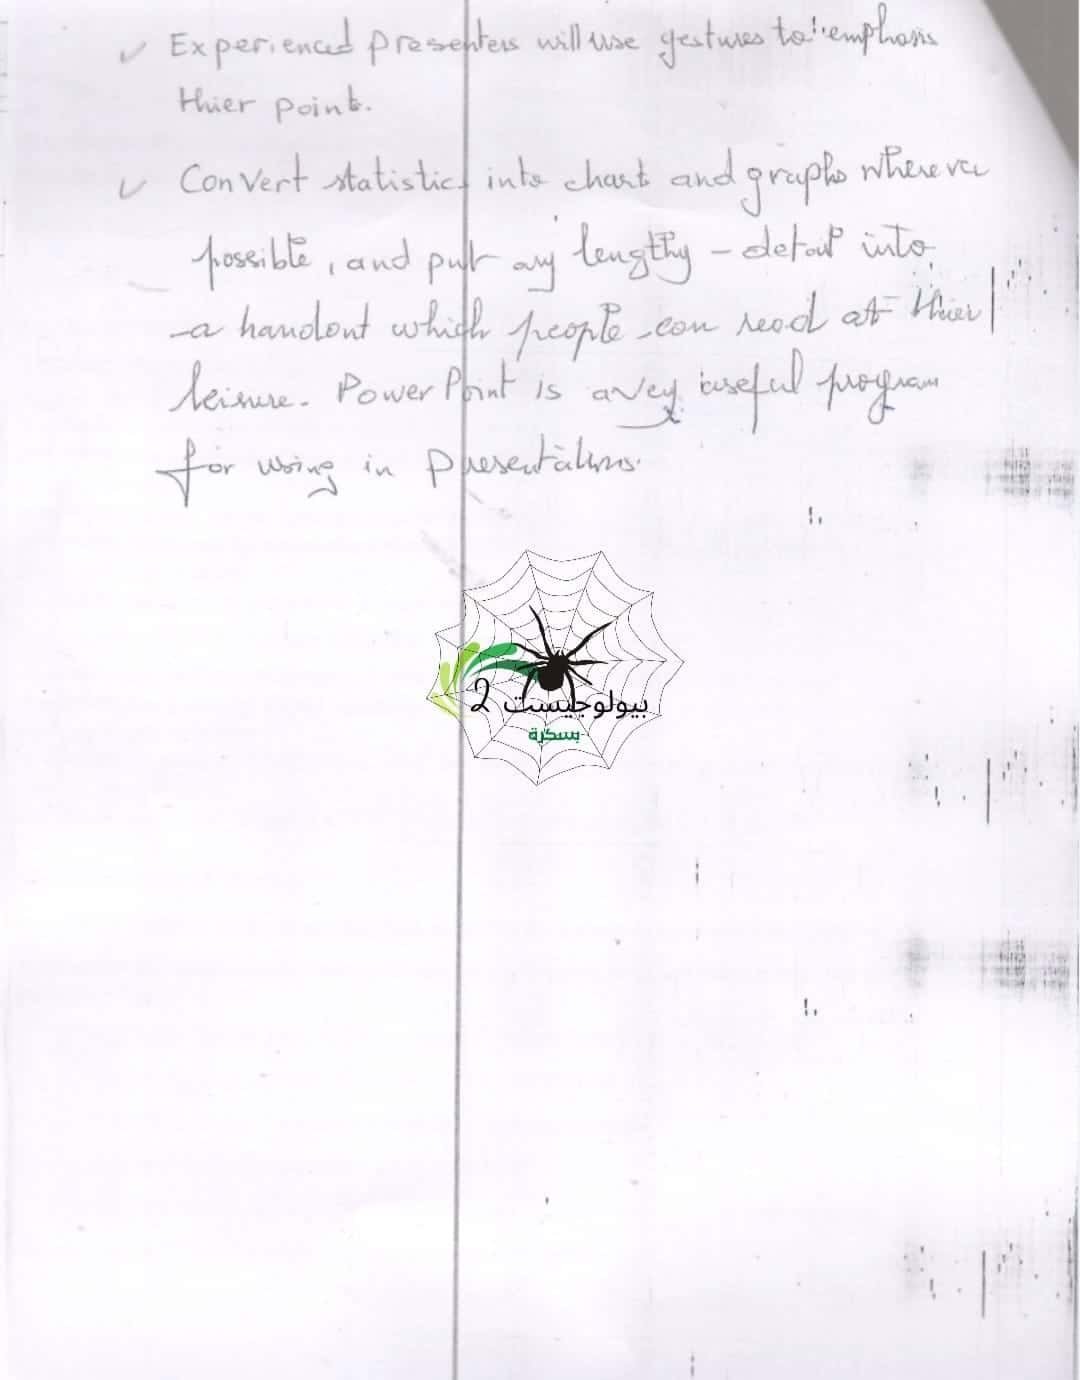 ✓ Experienced presenters will use gestures to emphasis
thier point.
✓ Convert statistics into chart and graphs wherever
possible, and put any lengthy - detail into
a handout which people can read at thier
leisure. PowerPoint is a very useful program
for using in presentations.
بيولوجيست 2
بسكرة